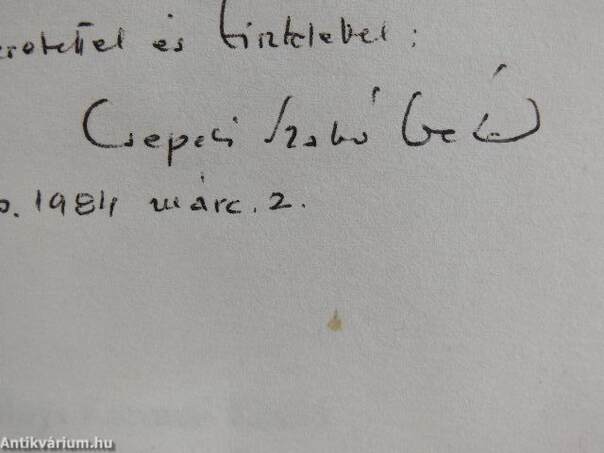 eretettel és tisztelettel:
Csepeli Szabó Béla
p. 1984 márc. 2.
Antikvárium.hu